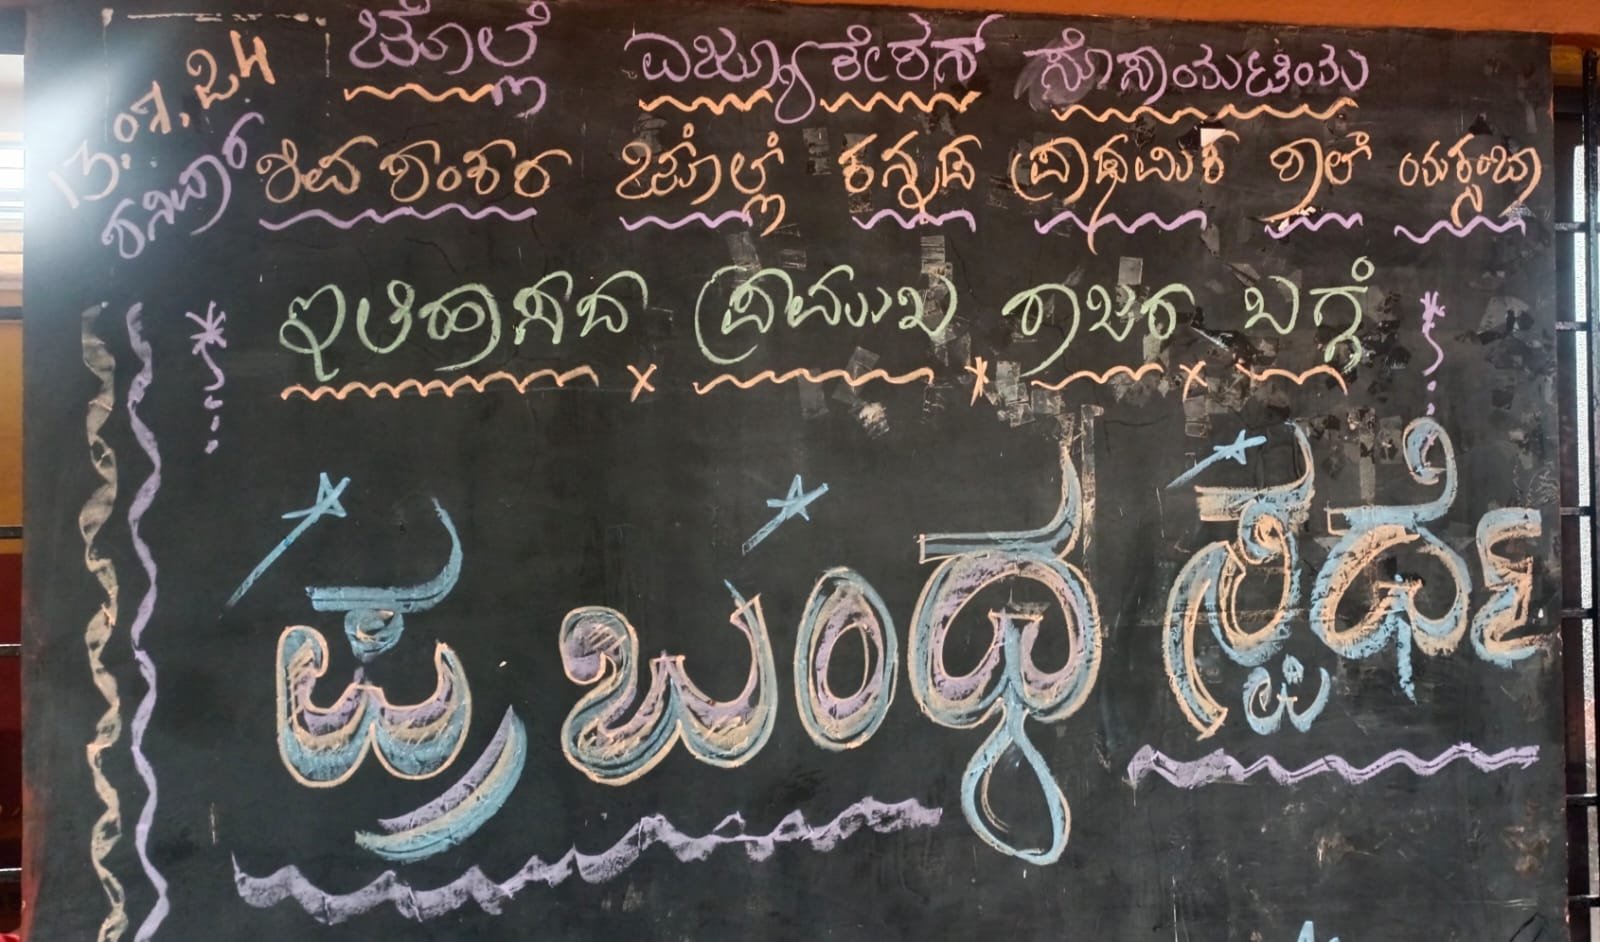 13.07.24
ಶನಿವಾರ
ಜೊಲ್ಲೆ ಎಜ್ಯುಕೇಶನ್ ಸೊಸಾಯಟಿಯ
ಶಿವ ಶಂಕರ ಜೊಲ್ಲೆ ಕನ್ನಡ ಪ್ರಾಥಮಿಕ ಶಾಲೆ ಯಕ್ಸಂಬಾ
ಇತಿಹಾಸದ ಪ್ರಮುಖ ರಾಜರ ಬಗ್ಗೆ
ಪ್ರಬಂಧ ಸ್ಪರ್ಧೆ